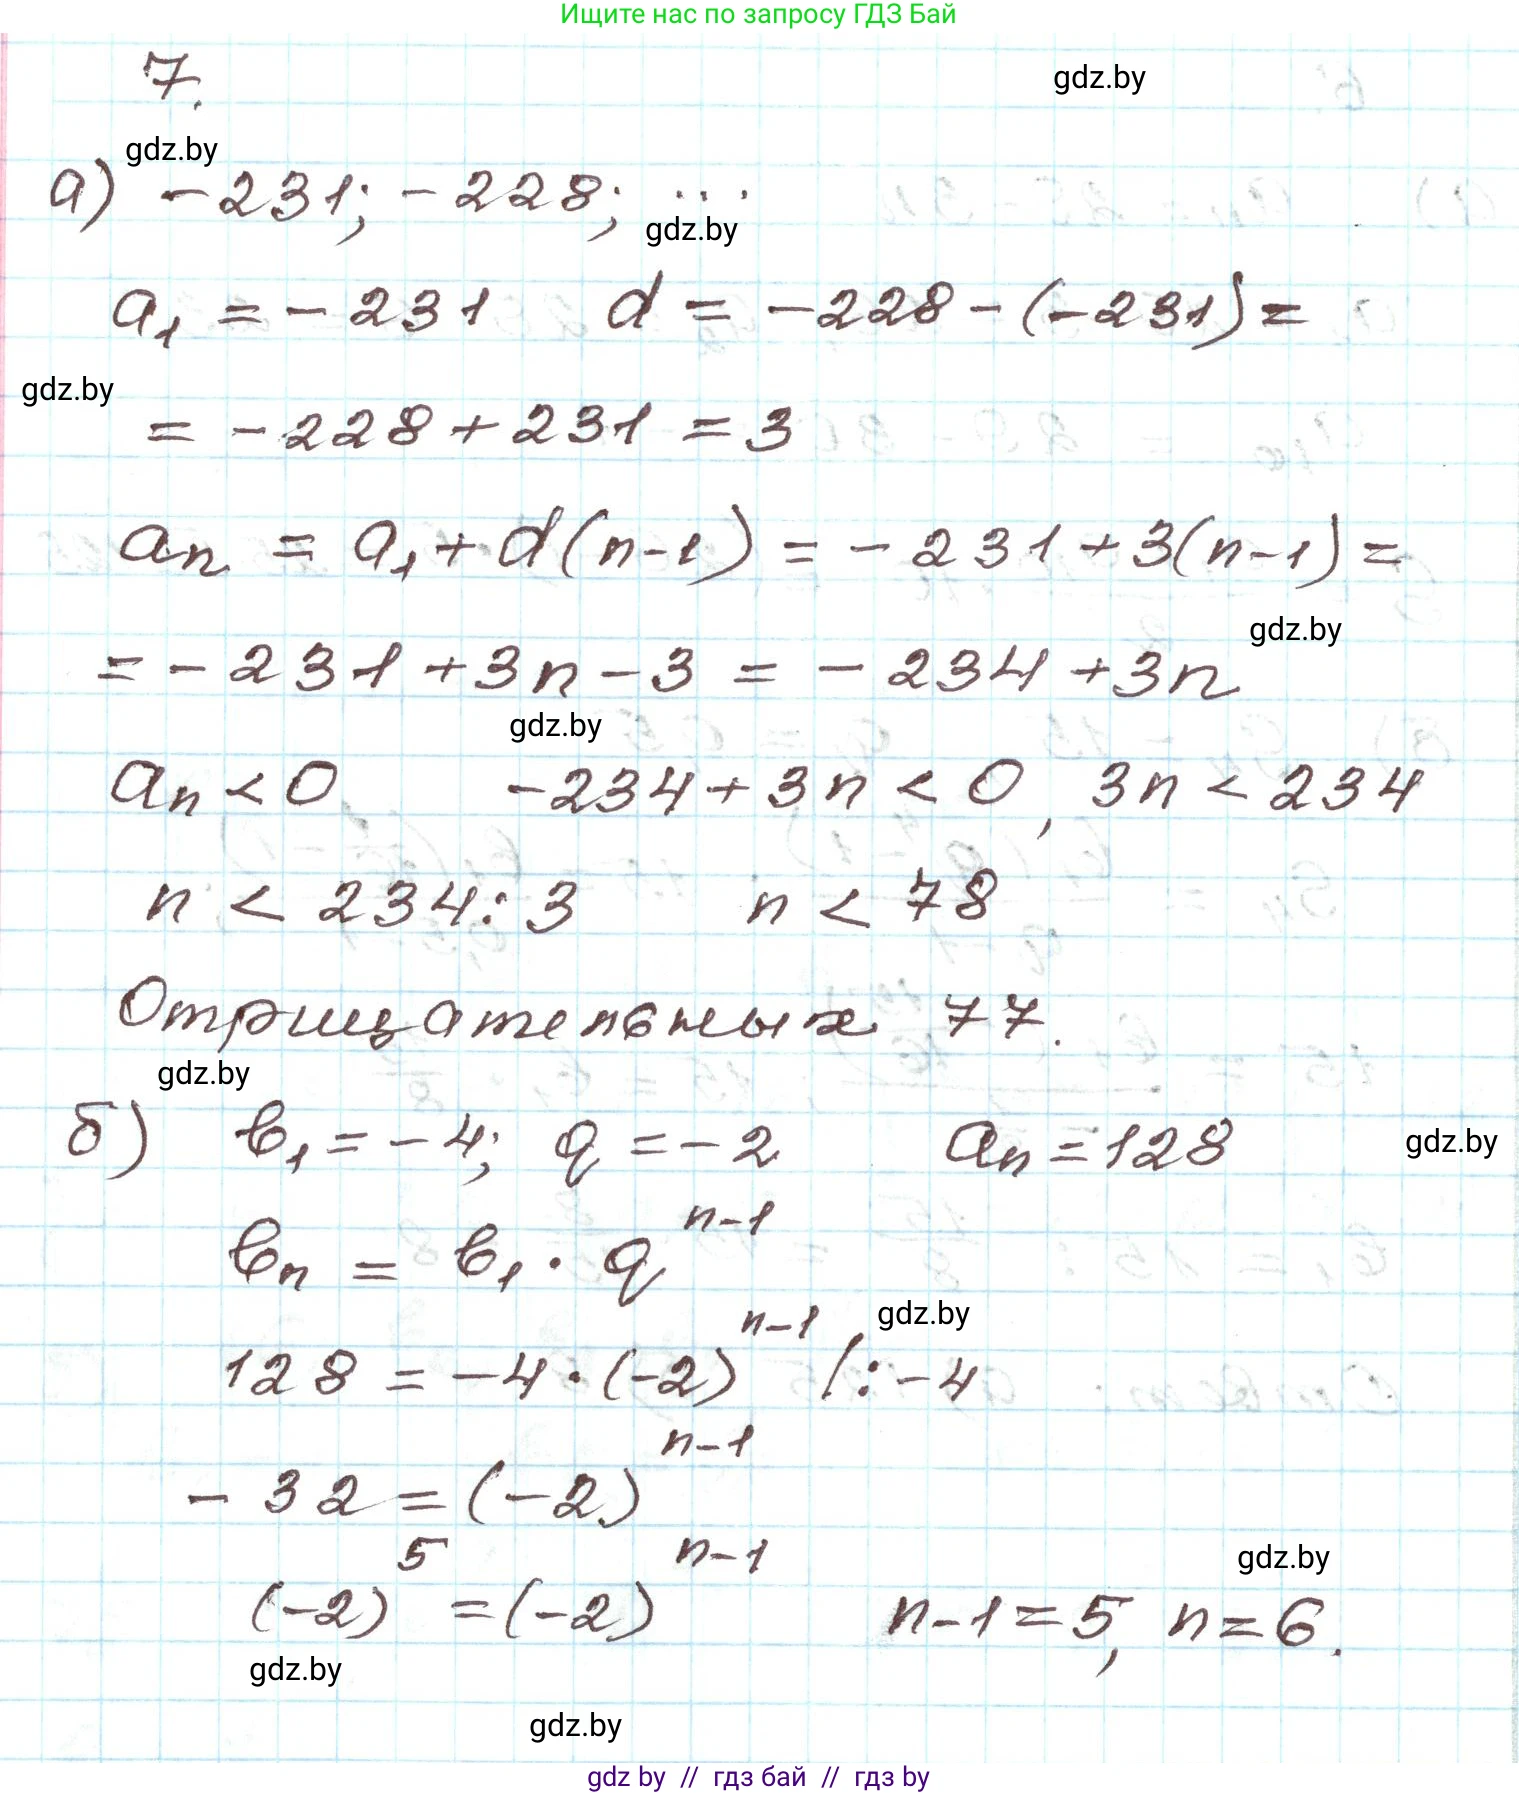 Ищите нас по запросу ГДЗ Бай
7.
gdz.by
gdz.by
а) -231; -228; ...
gdz.by
a₁ = -231 d = -228 - (-231) =
gdz.by
= -228 + 231 = 3
aₙ = a₁ + d(n-1) = -231 + 3(n-1) =
gdz.by
= -231 + 3n - 3 = -234 + 3n
gdz.by
aₙ < 0 -234 + 3n < 0, 3n < 234
n < 234 : 3 n < 78
Отрицательных 77.
gdz.by
б) b₁ = -4; q = -2 aₙ = 128
gdz.by
bₙ = b₁ · qⁿ⁻¹
gdz.by
128 = -4 · (-2)ⁿ⁻¹ /: -4
-32 = (-2)ⁿ⁻¹
gdz.by
(-2)⁵ = (-2)ⁿ⁻¹ n-1 = 5, n = 6.
gdz.by
gdz.by
gdz by // гдз бай // гдз by